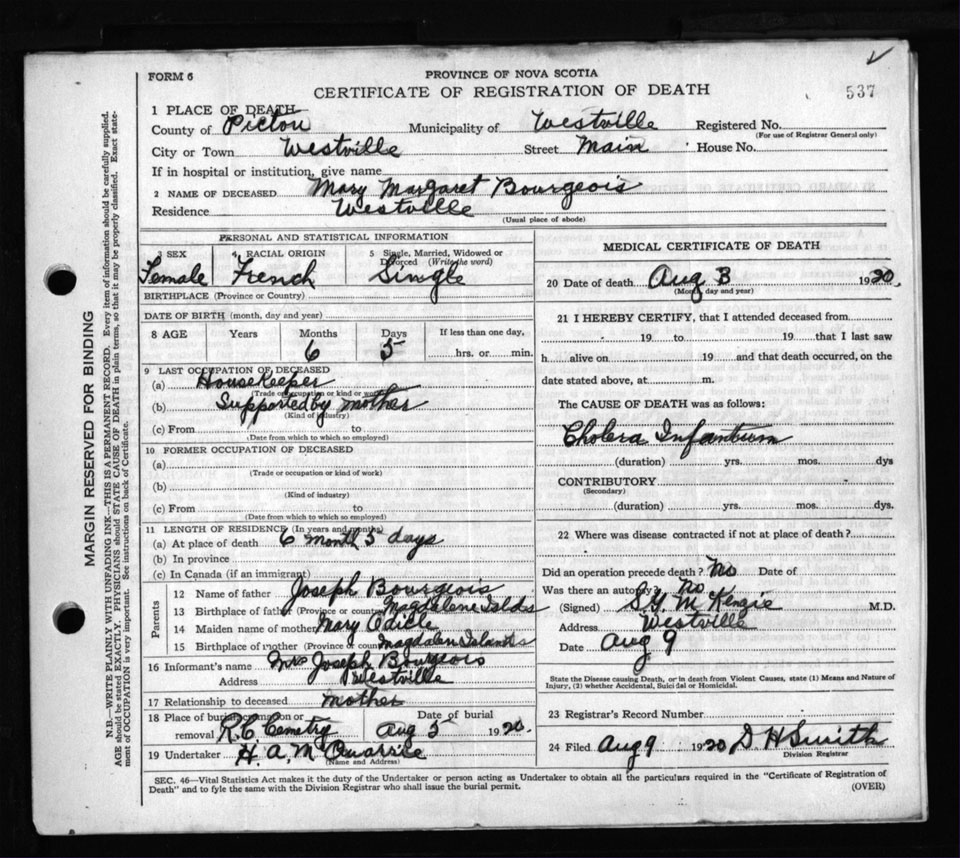 FORM 6
PROVINCE OF NOVA SCOTIA
CERTIFICATE OF REGISTRATION OF DEATH
537
1 PLACE OF DEATH
County of Pictou Municipality of Westville Registered No.
(For use of Registrar General only)
City or Town Westville Street Main House No.
If in hospital or institution, give name
2 NAME OF DECEASED Mary Margaret Bourgeois
Residence Westville
(Usual place of abode)
PERSONAL AND STATISTICAL INFORMATION
3 SEX 4 RACIAL ORIGIN 5 Single, Married, Widowed or Divorced (Write the word)
Female French Single
BIRTHPLACE (Province or Country)
DATE OF BIRTH (month, day and year)
8 AGE Years Months Days If less than one day,
6 5 hrs. or min.
9 LAST OCCUPATION OF DECEASED
(a) HouseKeeper
(Trade occupation or kind or work)
(b) Supported by mother
(Kind of industry)
(c) From to
(Date from which to which so employed)
10 FORMER OCCUPATION OF DECEASED
(a)
(Trade or occupation or kind of work)
(b)
(Kind of industry)
(c) From to
(Date from which to which so employed)
11 LENGTH OF RESIDENCE (In years and months)
(a) At place of death 6 month 5 days
(b) In province
(c) In Canada (if an immigrant)
Parents
12 Name of father Joseph Bourgeois
13 Birthplace of father (Province or country) Magdalene Islds
14 Maiden name of mother Mary Odicle
15 Birthplace of mother (Province or country) Magdalen Islands
16 Informant's name Mrs Joseph Bourgeois
Address Westville
17 Relationship to deceased mother
18 Place of burial, cremation or Date of burial
removal R.C. Cemetry Aug 5 1920.
19 Undertaker H. A. Mc Quarrie
(Name and Address)
MEDICAL CERTIFICATE OF DEATH
20 Date of death Aug 3 1920.
(Month, day and year)
21 I HEREBY CERTIFY, that I attended deceased from
19 to 19 that I last saw
h alive on 19 and that death occurred, on the
date stated above, at m.
The CAUSE OF DEATH was as follows:
Cholera Infantum
(duration) yrs. mos. dys
CONTRIBUTORY
(Secondary)
(duration) yrs. mos. dys
22 Where was disease contracted if not at place of death?
Did an operation precede death? No Date of
Was there an autopsy No
(Signed) S. G. McKenzie M.D.
Address Westville
Date Aug 9
State the Disease causing Death, or in death from Violent Causes, state (1) Means and Nature of
Injury, (2) whether Accidental, Suicidal or Homicidal.
23 Registrar's Record Number
24 Filed Aug 9 1920 D H Smith
Division Registrar
SEC. 46—Vital Statistics Act makes it the duty of the Undertaker or person acting as Undertaker to obtain all the particulars required in the "Certificate of Registration of
Death" and to fyle the same with the Division Registrar who shall issue the burial permit.
(OVER)
MARGIN RESERVED FOR BINDING
N.B.—WRITE PLAINLY WITH UNFADING INK—THIS IS A PERMANENT RECORD. Every item of information should be carefully supplied.
AGE should be stated EXACTLY. PHYSICIANS should STATE CAUSE OF DEATH in plain terms, so that it may be properly classified. Exact state-
ment of OCCUPATION is very important. See instructions on back of Certificate.